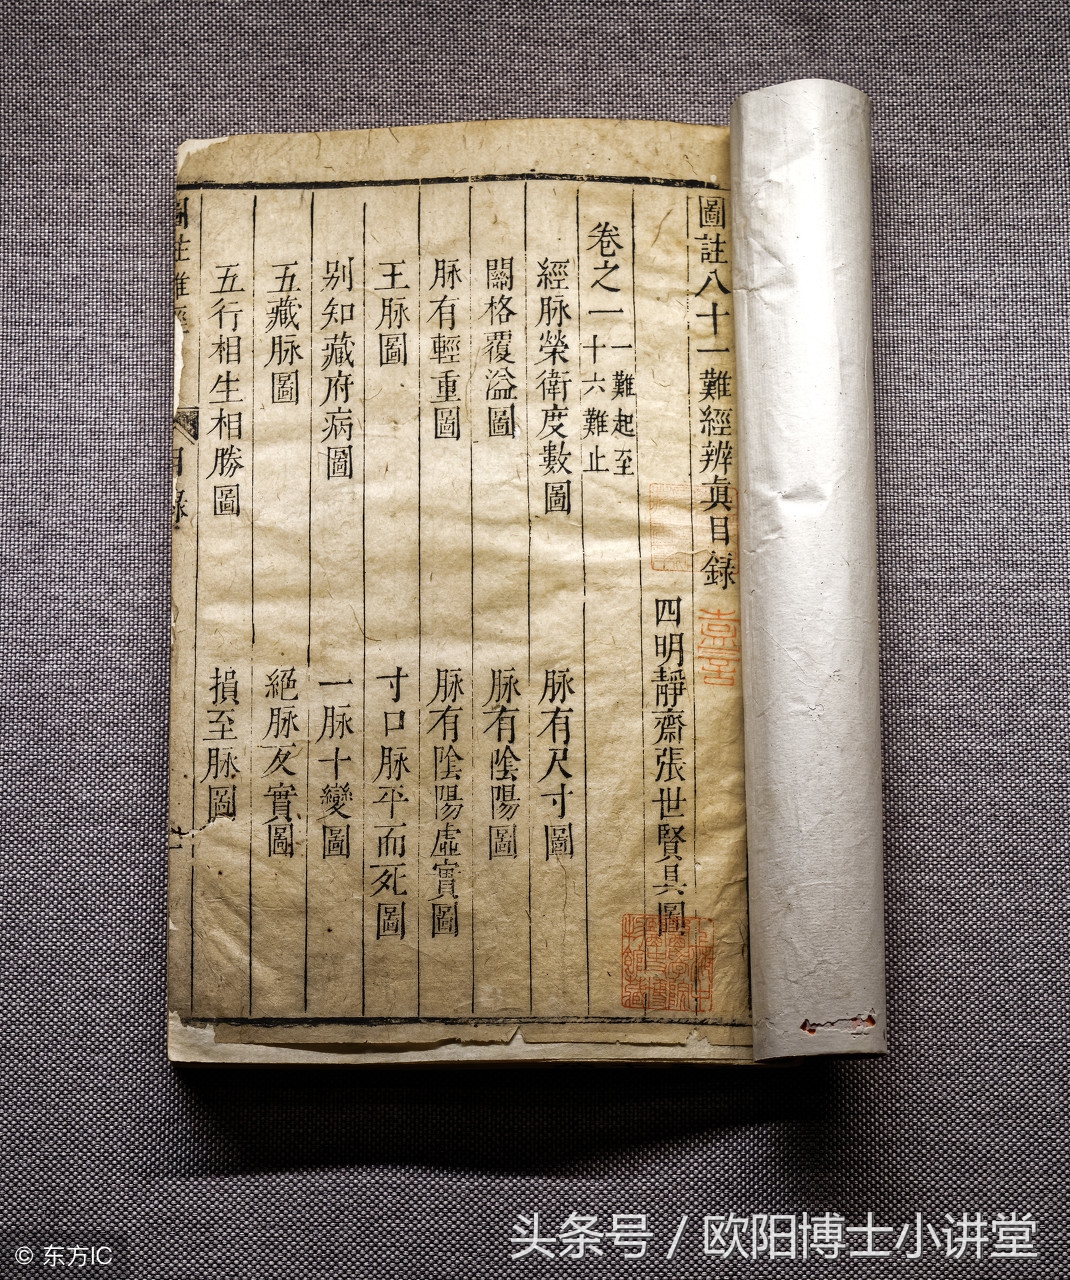 圖註八十一難經辨真目録
四明靜齋張世賢具圖
卷之一 一難起至十六難止
經脉榮衛度數圖 脉有尺寸圖
關格覆溢圖 脉有陰陽圖
脉有輕重圖 脉有陰陽虛實圖
王脉圖 寸口脉平而死圖
别知藏府病圖 一脉十變圖
五藏脉圖 絕脉反實圖
五行相生相勝圖 損至脉圖
頭条号 / 欧阳博士小讲堂
© 东方IC